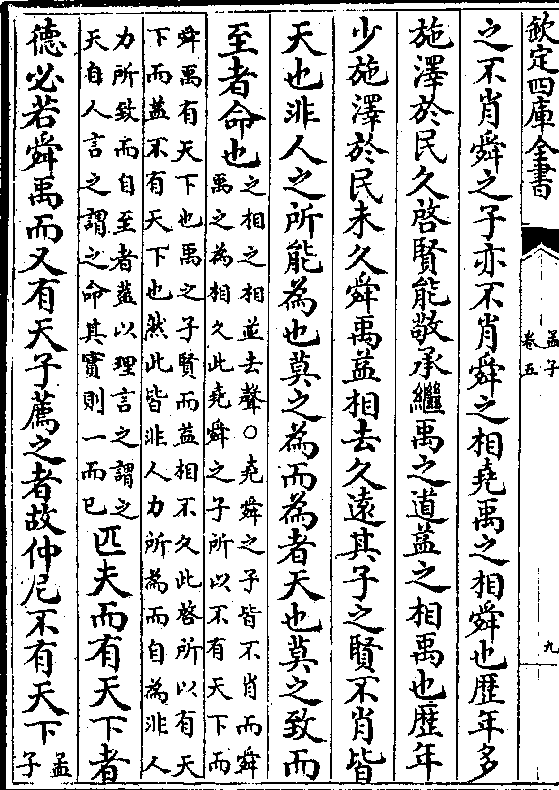 欽定四庫全書
孟子
卷五
九
之不肖舜之子亦不肖舜之相堯禹之相舜也歷年多
施澤於民久啓賢能敬承繼禹之道益之相禹也歷年
少施澤於民未久舜禹益相去久遠其子之賢不肖皆
天也非人之所能為也莫之為而為者天也莫之致而
至者命也
之相之相並去聲○堯舜之子皆不肖而舜
禹之為相久此堯舜之子所以不有天下而
舜禹有天下也禹之子賢而益相不久此啓所以有天
下而益不有天下也然此皆非人力所為而自為非人
力所致而自至者葢以理言之謂之
天自人言之謂之命其實則一而已
匹夫而有天下者
德必若舜禹而又有天子薦之者故仲尼不有天下
孟
子